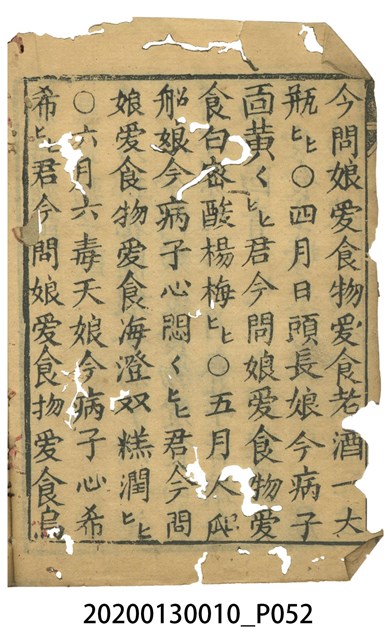 今問娘愛食物愛食老酒一大
瓶匕匕〇四月日頭長娘今病子
面黄く匕匕君今問娘愛食物愛
食白密酸楊梅匕匕〇五月人爬
船娘今病子心悶く匕匕君今問
娘愛食物愛食海澄双糕潤匕匕
〇六月六毒天娘今病子心希
希匕匕君今問娘愛食物愛食烏
20200130010_P052